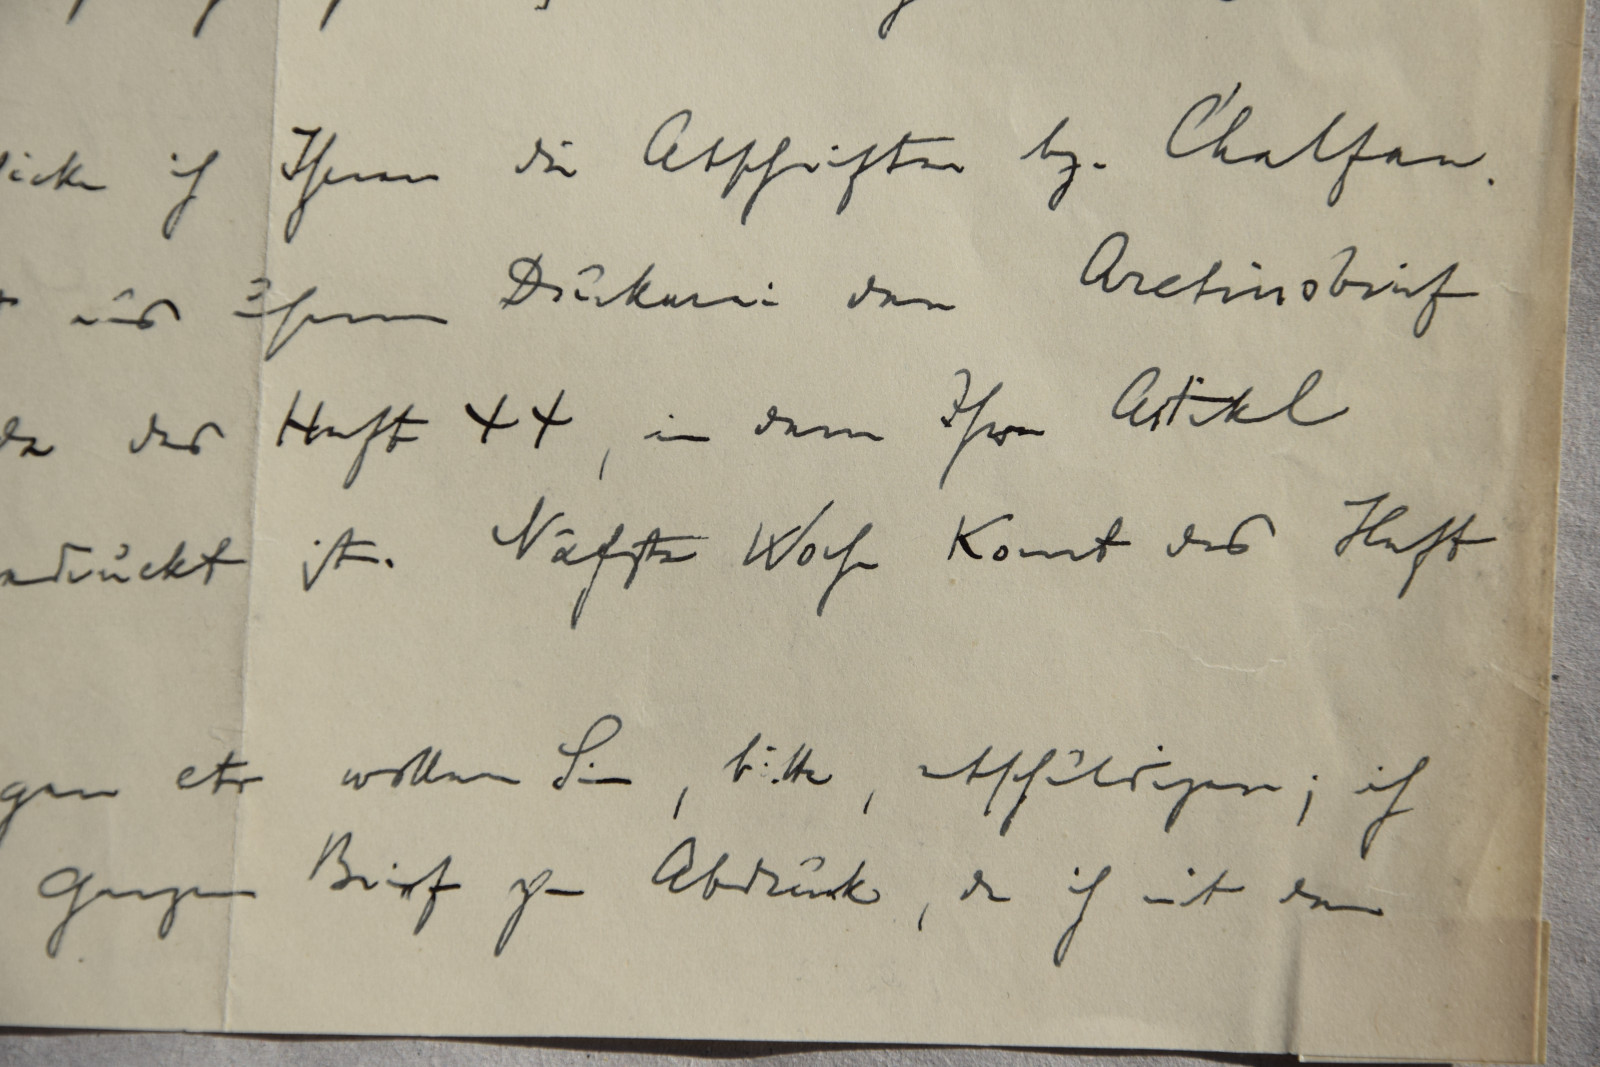 schicke ich Ihnen die Abschriften bz. Chalfan.
aus Ihrer Druckerei den Aretinobrief
da das Heft 44, in dem Ihr Artikel
gedruckt ist. Nächste Woche kommt das Heft
gen etc wollen Sie, bitte, entschuldigen; ich
ganzen Brief zum Abdruck, da ich mit dem